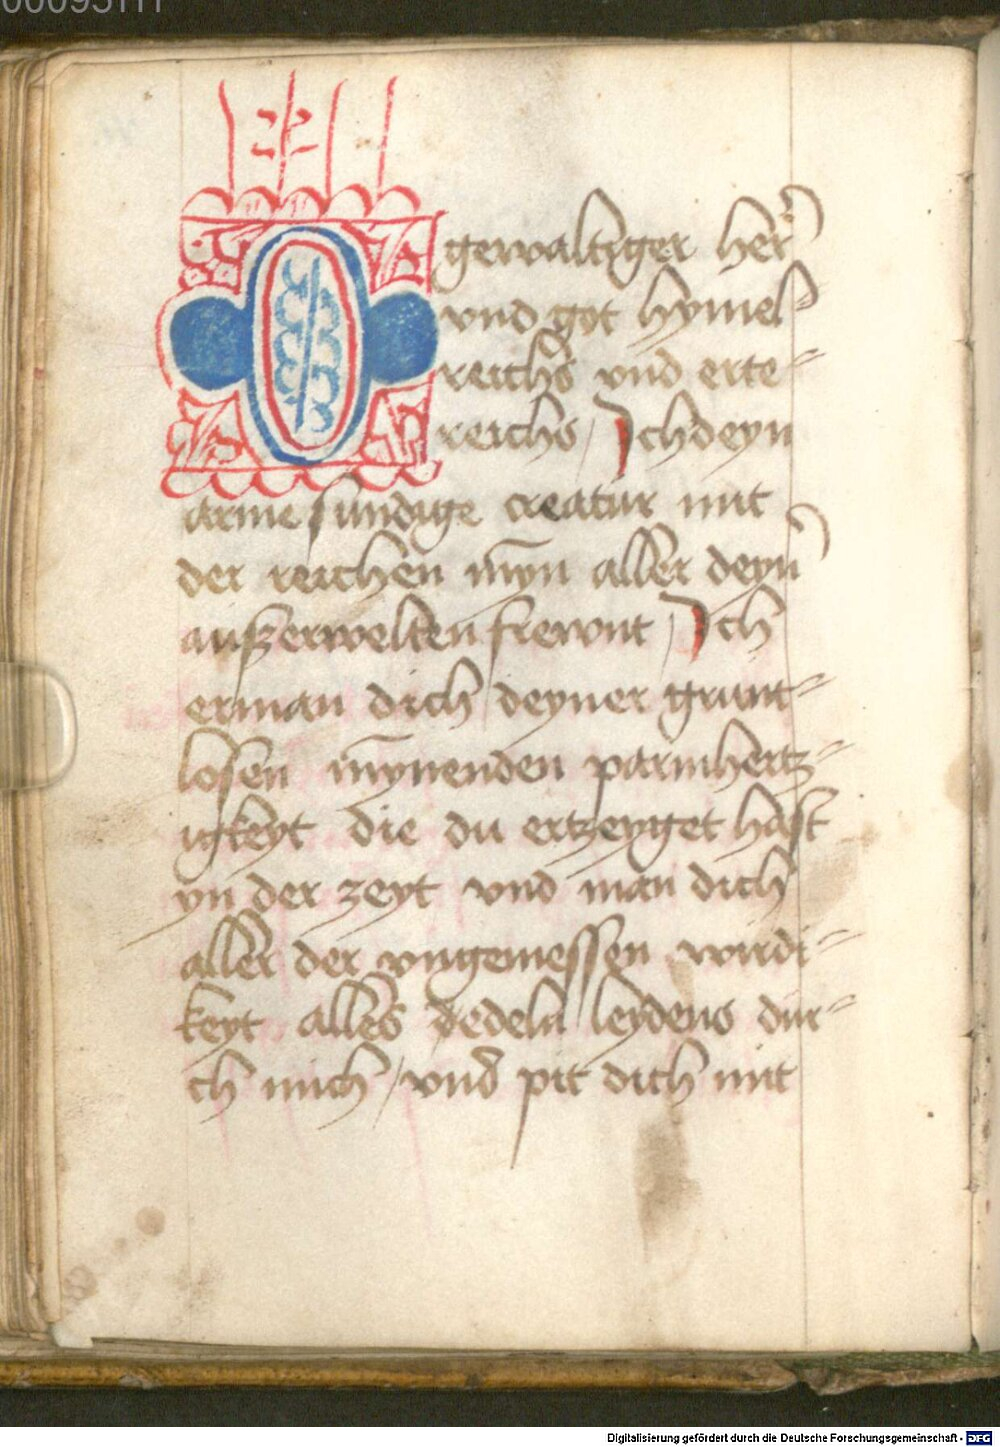 O gewaltiger her̃
vnd got hymel
reichs vnd erte-
reichs / Ich deyn
arme sundige creatur mit
der reichen m̄yn aller deyñ
auszerwelten frewnt / Ich
erman dich deyner grunt-
losen m̄ynenden parmhertz-
igkeyt die du ertzeyget hast
yn der zeyt vnd man dich
aller der vngemessen wirdi-
keyt alles dedeln leydens dur-
ch mich / vnd pit dich mit
Digitalisierung gefördert durch die Deutsche Forschungsgemeinschaft - DFG